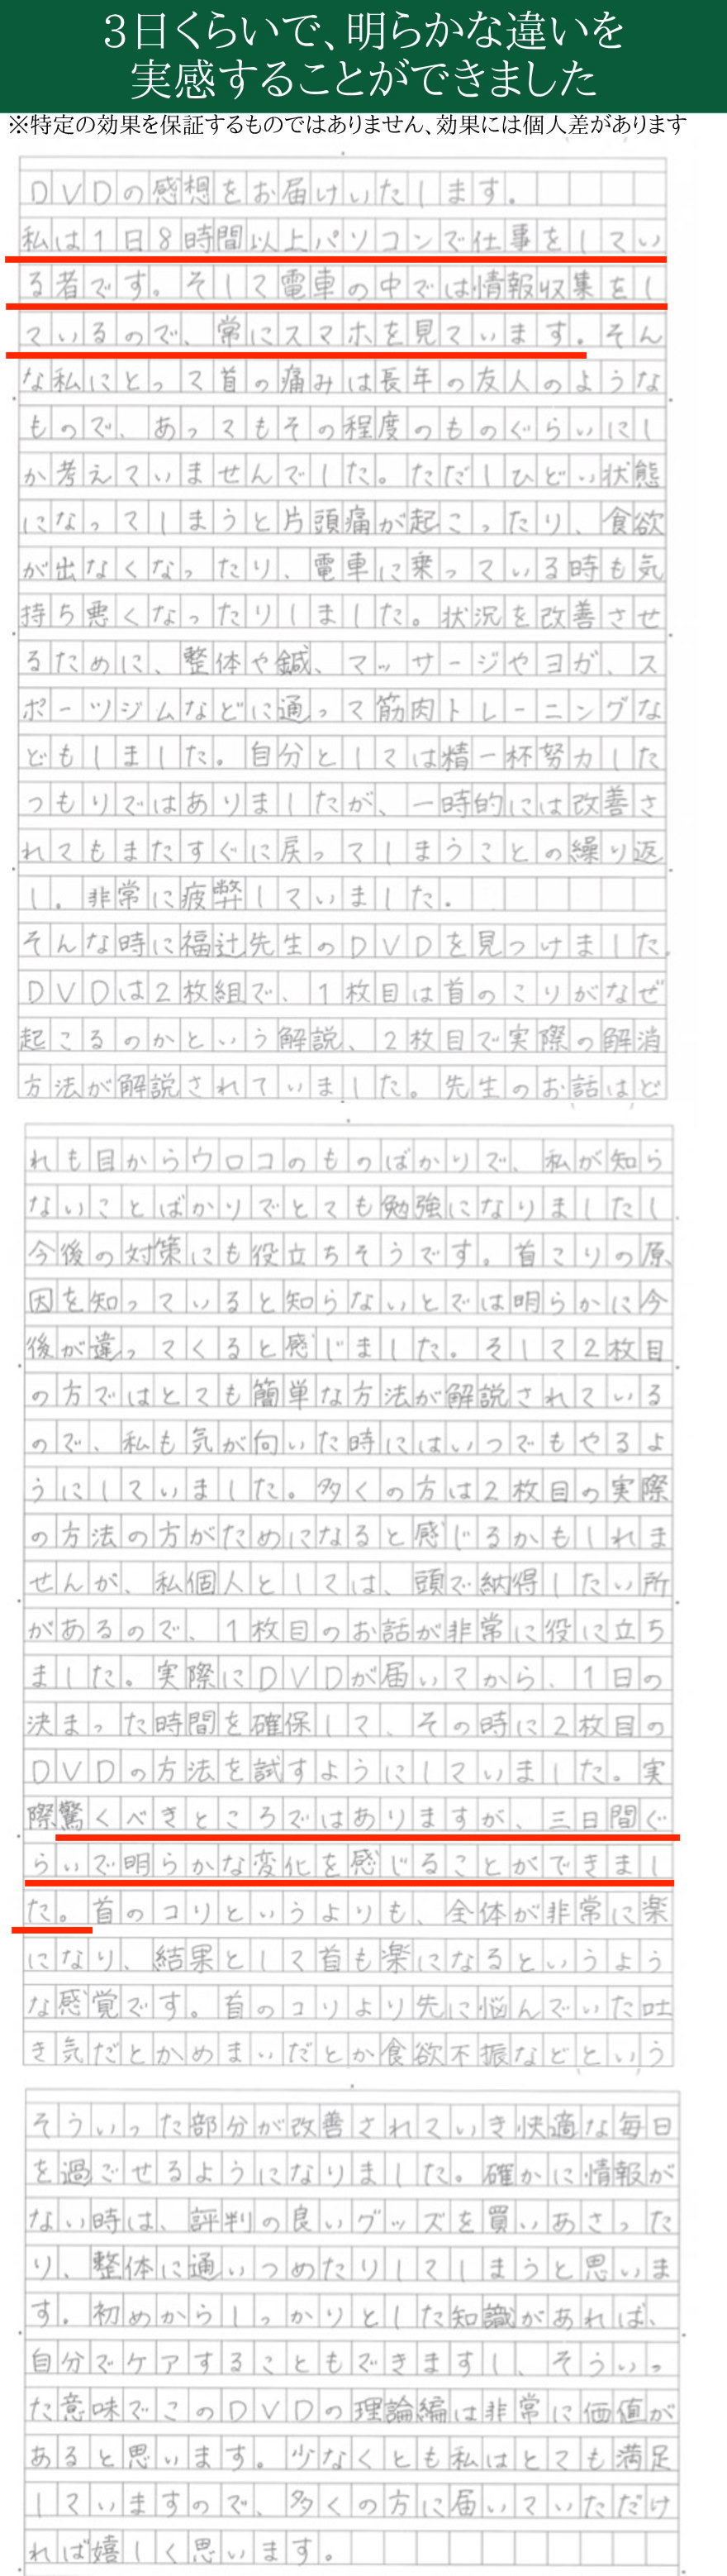 3日くらいで、明らかな違いを
実感することができました
※特定の効果を保証するものではありません、効果には個人差があります
DVDの感想をお届けいたします。
私は1日8時間以上パソコンで仕事をしてい
る者です。そして電車の中では情報収集をし
ているので、常にスマホを見ています。そん
な私にとって首の痛みは長年の友人のような
もので、あってもその程度のものぐらいにし
か考えていませんでした。ただしひどい状態
になってしまうと片頭痛が起こったり、食欲
が出なくなったり、電車に乗っている時も気
持ち悪くなったりしました。状況を改善させ
るために、整体や鍼、マッサージやヨガ、ス
ポーツジムなどに通って筋肉トレーニングな
どもしました。自分としては精一杯努力した
つもりではありましたが、一時的には改善さ
れてもまたすぐに戻ってしまうことの繰り返
し。非常に疲弊していました。
そんな時に福辻先生のDVDを見つけました。
DVDは2枚組で、1枚目は首のこりがなぜ
起こるのかという解説、2枚目で実際の解消
方法が解説されていました。先生のお話はど
れも目からウロコのものばかりで、私が知ら
ないことばかりでとても勉強になりましたし、
今後の対策にも役立ちそうです。首こりの原
因を知っていると知らないとでは明らかに今
後が違ってくると感じました。そして2枚目
の方ではとても簡単な方法が解説されている
ので、私も気が向いた時にはいつでもやるよ
うにしていました。多くの方は2枚目の実際
の方法の方がためになると感じるかもしれま
せんが、私個人としては、頭で納得したい所
があるので、1枚目のお話が非常に役に立ち
ました。実際にDVDが届いてから、1日の
決まった時間を確保して、その時に2枚目の
DVDの方法を試すようにしていました。実
際驚くべきところではありますが、三日間ぐ
らいで明らかな変化を感じることができまし
た。首のコリというよりも、全体が非常に楽
になり、結果として首も楽になるというよう
な感覚です。首のコリより先に悩んでいた吐
き気だとかめまいだとか食欲不振などという
そういった部分が改善されていき快適な毎日
を過ごせるようになりました。確かに情報が
ない時は、評判の良いグッズを買いあさった
り、整体に通いつめたりしてしまうと思いま
す。初めからしっかりとした知識があれば、
自分でケアすることもできますし、そういっ
た意味でこのDVDの理論編は非常に価値が
あると思います。少なくとも私はとても満足
していますので、多くの方に届いていただけ
れば嬉しく思います。